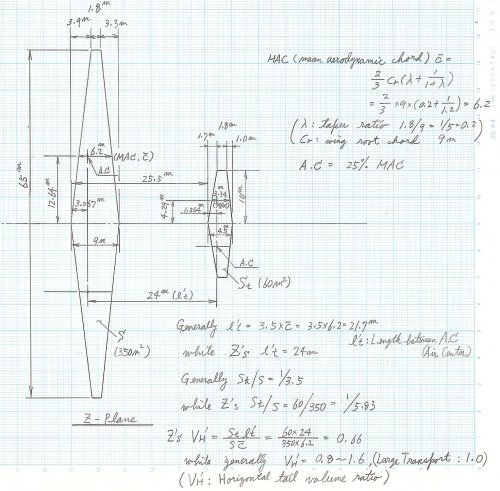 1.8m
3.9m
3.3m
MAC (mean aerodynamic chord) c̄ =
2/3 Cr(λ + 1/(1+λ))
= 2/3 × 9 × (0.2 + 1/1.2) = 6.2
(λ : taper ratio 1.8/9 = 1/5 = 0.2)
Cr : wing root chord 9m
A.C = 25% MAC
65m
6.2m (MAC, c̄)
A.C
25.5m
12.64m
3.067m
9m
1.8m
1.7m
1.0m
10m
4.29m
(MAC)
A.C
St (60m²)
24m (l't)
S
(350m²)
Z-Plane
Generally l't = 3.5×c̄ = 3.5×6.2 = 21.7m
l't : Length between A.C
(Air Center)
while Z's l't = 24m
Generally St/S = 1/3.5
while Z's St/S = 60/350 = 1/5.83
Z's VH' = St l't / S c̄ = 60×24 / 350×6.2 = 0.66
while generally VH' = 0.8 ~ 1.6, (Large Transport : 1.0)
(VH' : Horizontal tail volume ratio)